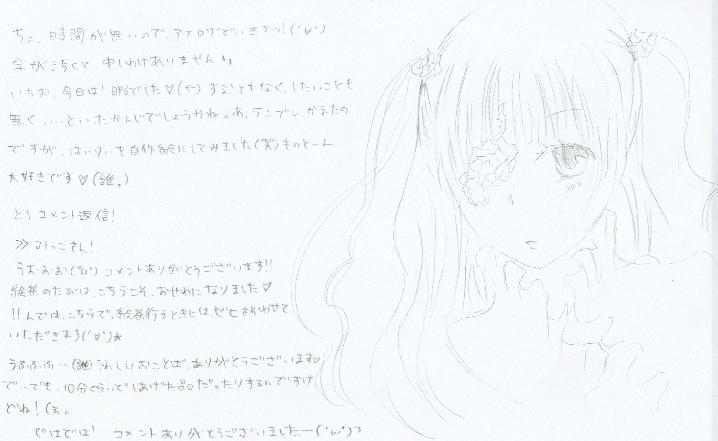 ちょ、時間が無いので、アナログでいきまっ!(´∨`)
字が汚くて、申しわけありません
いちお、今日は!暇でした♡(だ)することもなく、したいことも
無く、…といったかんじでしょうかね。あ、テンプレかえたの
ですが、はいけいを自作絵にしてみました(笑)きのとーん
大好きです♡(誰。)
と!コメント返信!
≫みっこさん!
うおおお(°□°)コメントありがとうございます!!
絵茶のたびは、こちらこそ、おせわになりました♡
!!んでは、こちらで、絵茶行うときには、ぜひさそわせて
いただきまう(´∀`)★
うふふふ…(誰)うれしいおことば、ありがとうございます♡
で…でも、10分くらいでしあげた品だったりするんですけ
どね!
ではでは! コメントありがとうございましたー(´ω`)